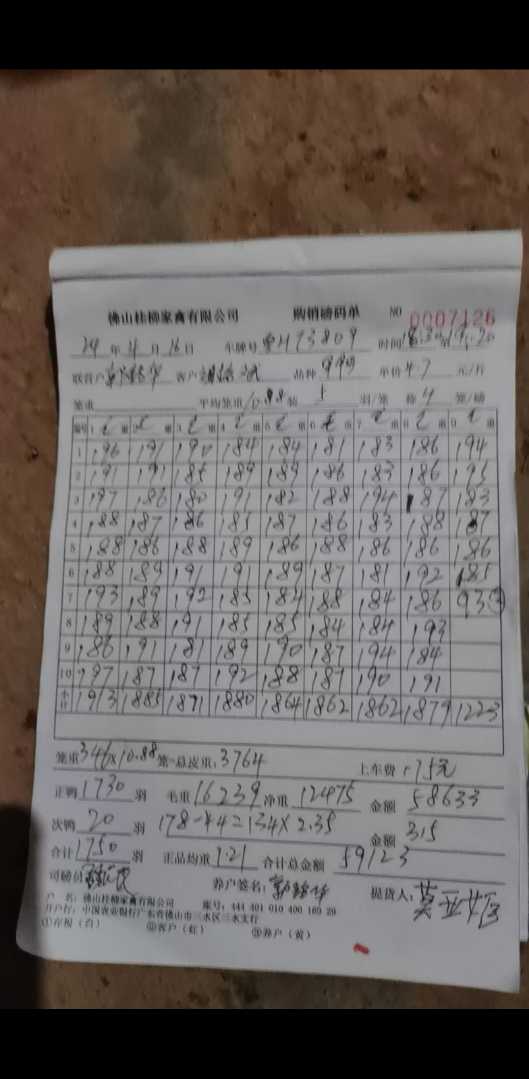 佛山桂柳家禽有限公司 购销磅码单 NO 0007126
24 年 4 月 16 日 车牌号 粤H73809 时间 18:30 19:20
联营户 客户 品种 单价 4.7 元/斤
笼重 平均笼重 10.88 装 羽/笼 称 4 笼/磅
编号 1 重 2 重 3 重 4 重 5 重 6 重 7 重 8 重 9 重
1 196 191 190 184 184 181 183 186 194
2 191 191 185 189 189 186 183 186 195
3 197 186 180 191 182 188 194 187 183
4 188 187 186 185 187 186 183 188 187
5 188 186 188 189 186 188 186 186 186
6 188 189 191 191 189 187 181 192 185
7 193 189 192 185 184 188 184 186 93
8 189 188 191 185 185 184 184 193
9 186 191 181 189 190 187 194 184
10 197 187 187 192 188 187 190 191
小计 1973 1885 1871 1880 1864 1862 1862 1879 1223
笼重 346×10.88 笼=总皮重: 3764 上车费 175元
正鸭 1730 羽 毛重 16239 净重 12475 金额 58633
次鸭 20 羽 178-44=134×2.35 金额 315
合计 1750 羽 正品均重 7.21 合计总金额 59123
司磅员 养户签名: 提货人: 莫亚
户 名: 佛山桂柳家禽有限公司 账号: 444 401 010 400 169 29
开户行: 中国农业银行广东省佛山市三水区三水支行
①存根(白) ②客户(红) ③养户(黄)